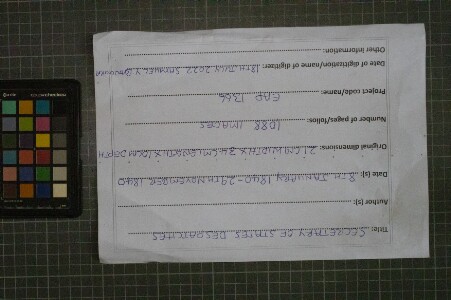 Title: SECRETARY OF STATES DESPATCHES
Author(s):
Date (s): 8TH JANUARY 1840 - 29TH NOVEMBER 1840
Original dimensions: 21CM WIDTH X 34.5CM LENGTH X 10CM DEPTH
Number of pages/folios: 1088 IMAGES
Project code/name: EAP 1366
Date of digitization/name/digitizer: 18TH JULY 2022
Other information: